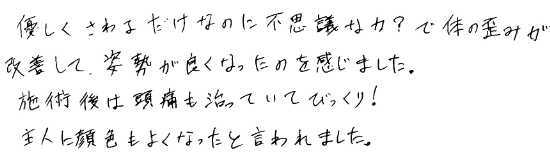 優しくさわるだけなのに不思議な力？で体の歪みが
改善して、姿勢が良くなったのを感じました。
施術後は頭痛も治っていてびっくり！
主人に顔色もよくなったと言われました。